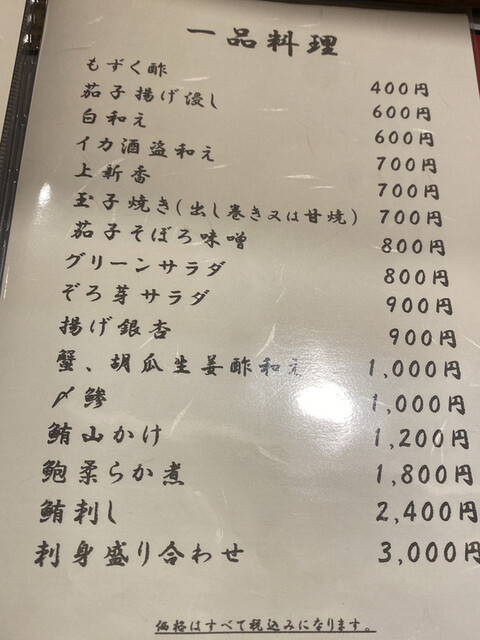 一品料理
もずく酢 400円
茄子揚げ浸し 600円
白和え 600円
イカ酒盗和え 700円
上新香 700円
玉子焼き(出し巻き又は甘焼) 700円
茄子そぼろ味噌 800円
グリーンサラダ 800円
ぞろ芽サラダ 900円
揚げ銀杏 900円
蟹、胡瓜生姜酢和え 1,000円
〆鯵 1,000円
鮪山かけ 1,200円
鮑柔らか煮 1,800円
鮪刺し 2,400円
刺身盛り合わせ 3,000円
価格はすべて税込みになります。